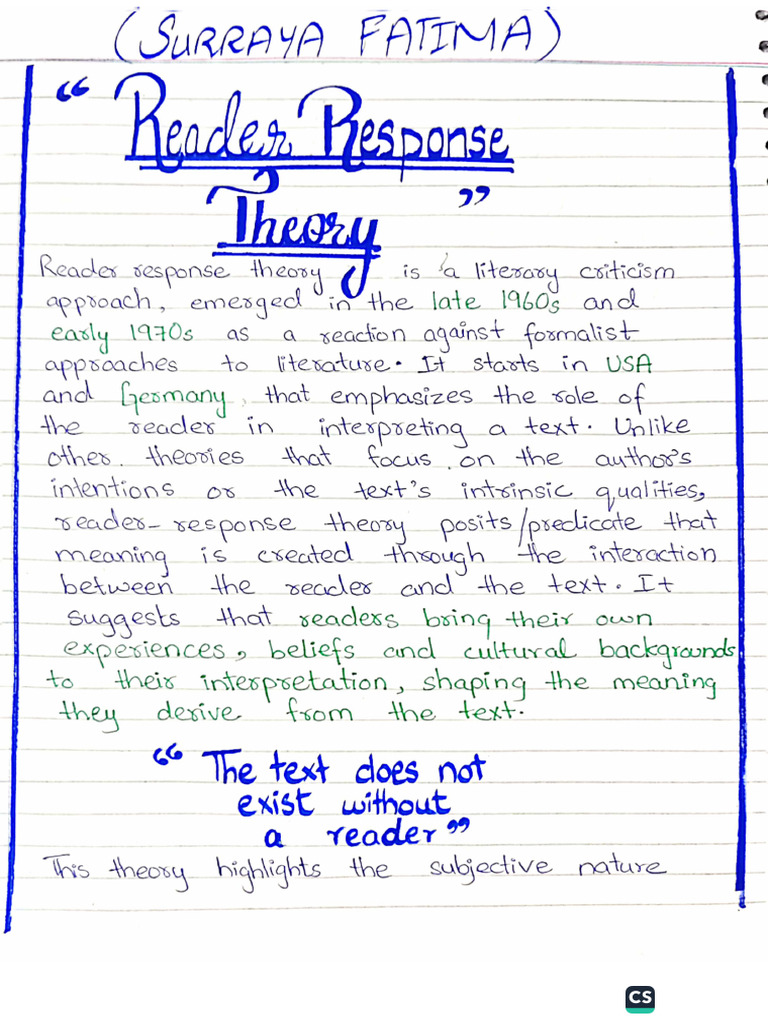 (SURRAYA FATIMA)
“Reader Response
Theory”
Reader response theory is a literary criticism
approach, emerged in the late 1960s and
early 1970s as a reaction against formalist
approaches to literature. It starts in USA
and Germany, that emphasizes the role of
the reader in interpreting a text. Unlike
other theories that focus on the author's
intentions or the text's intrinsic qualities,
reader-response theory posits/predicate that
meaning is created through the interaction
between the reader and the text. It
suggests that readers bring their own
experiences, beliefs and cultural backgrounds
to their interpretation, shaping the meaning
they derive from the text.
“The text does not
exist without
a reader”
This theory highlights the subjective nature
CS